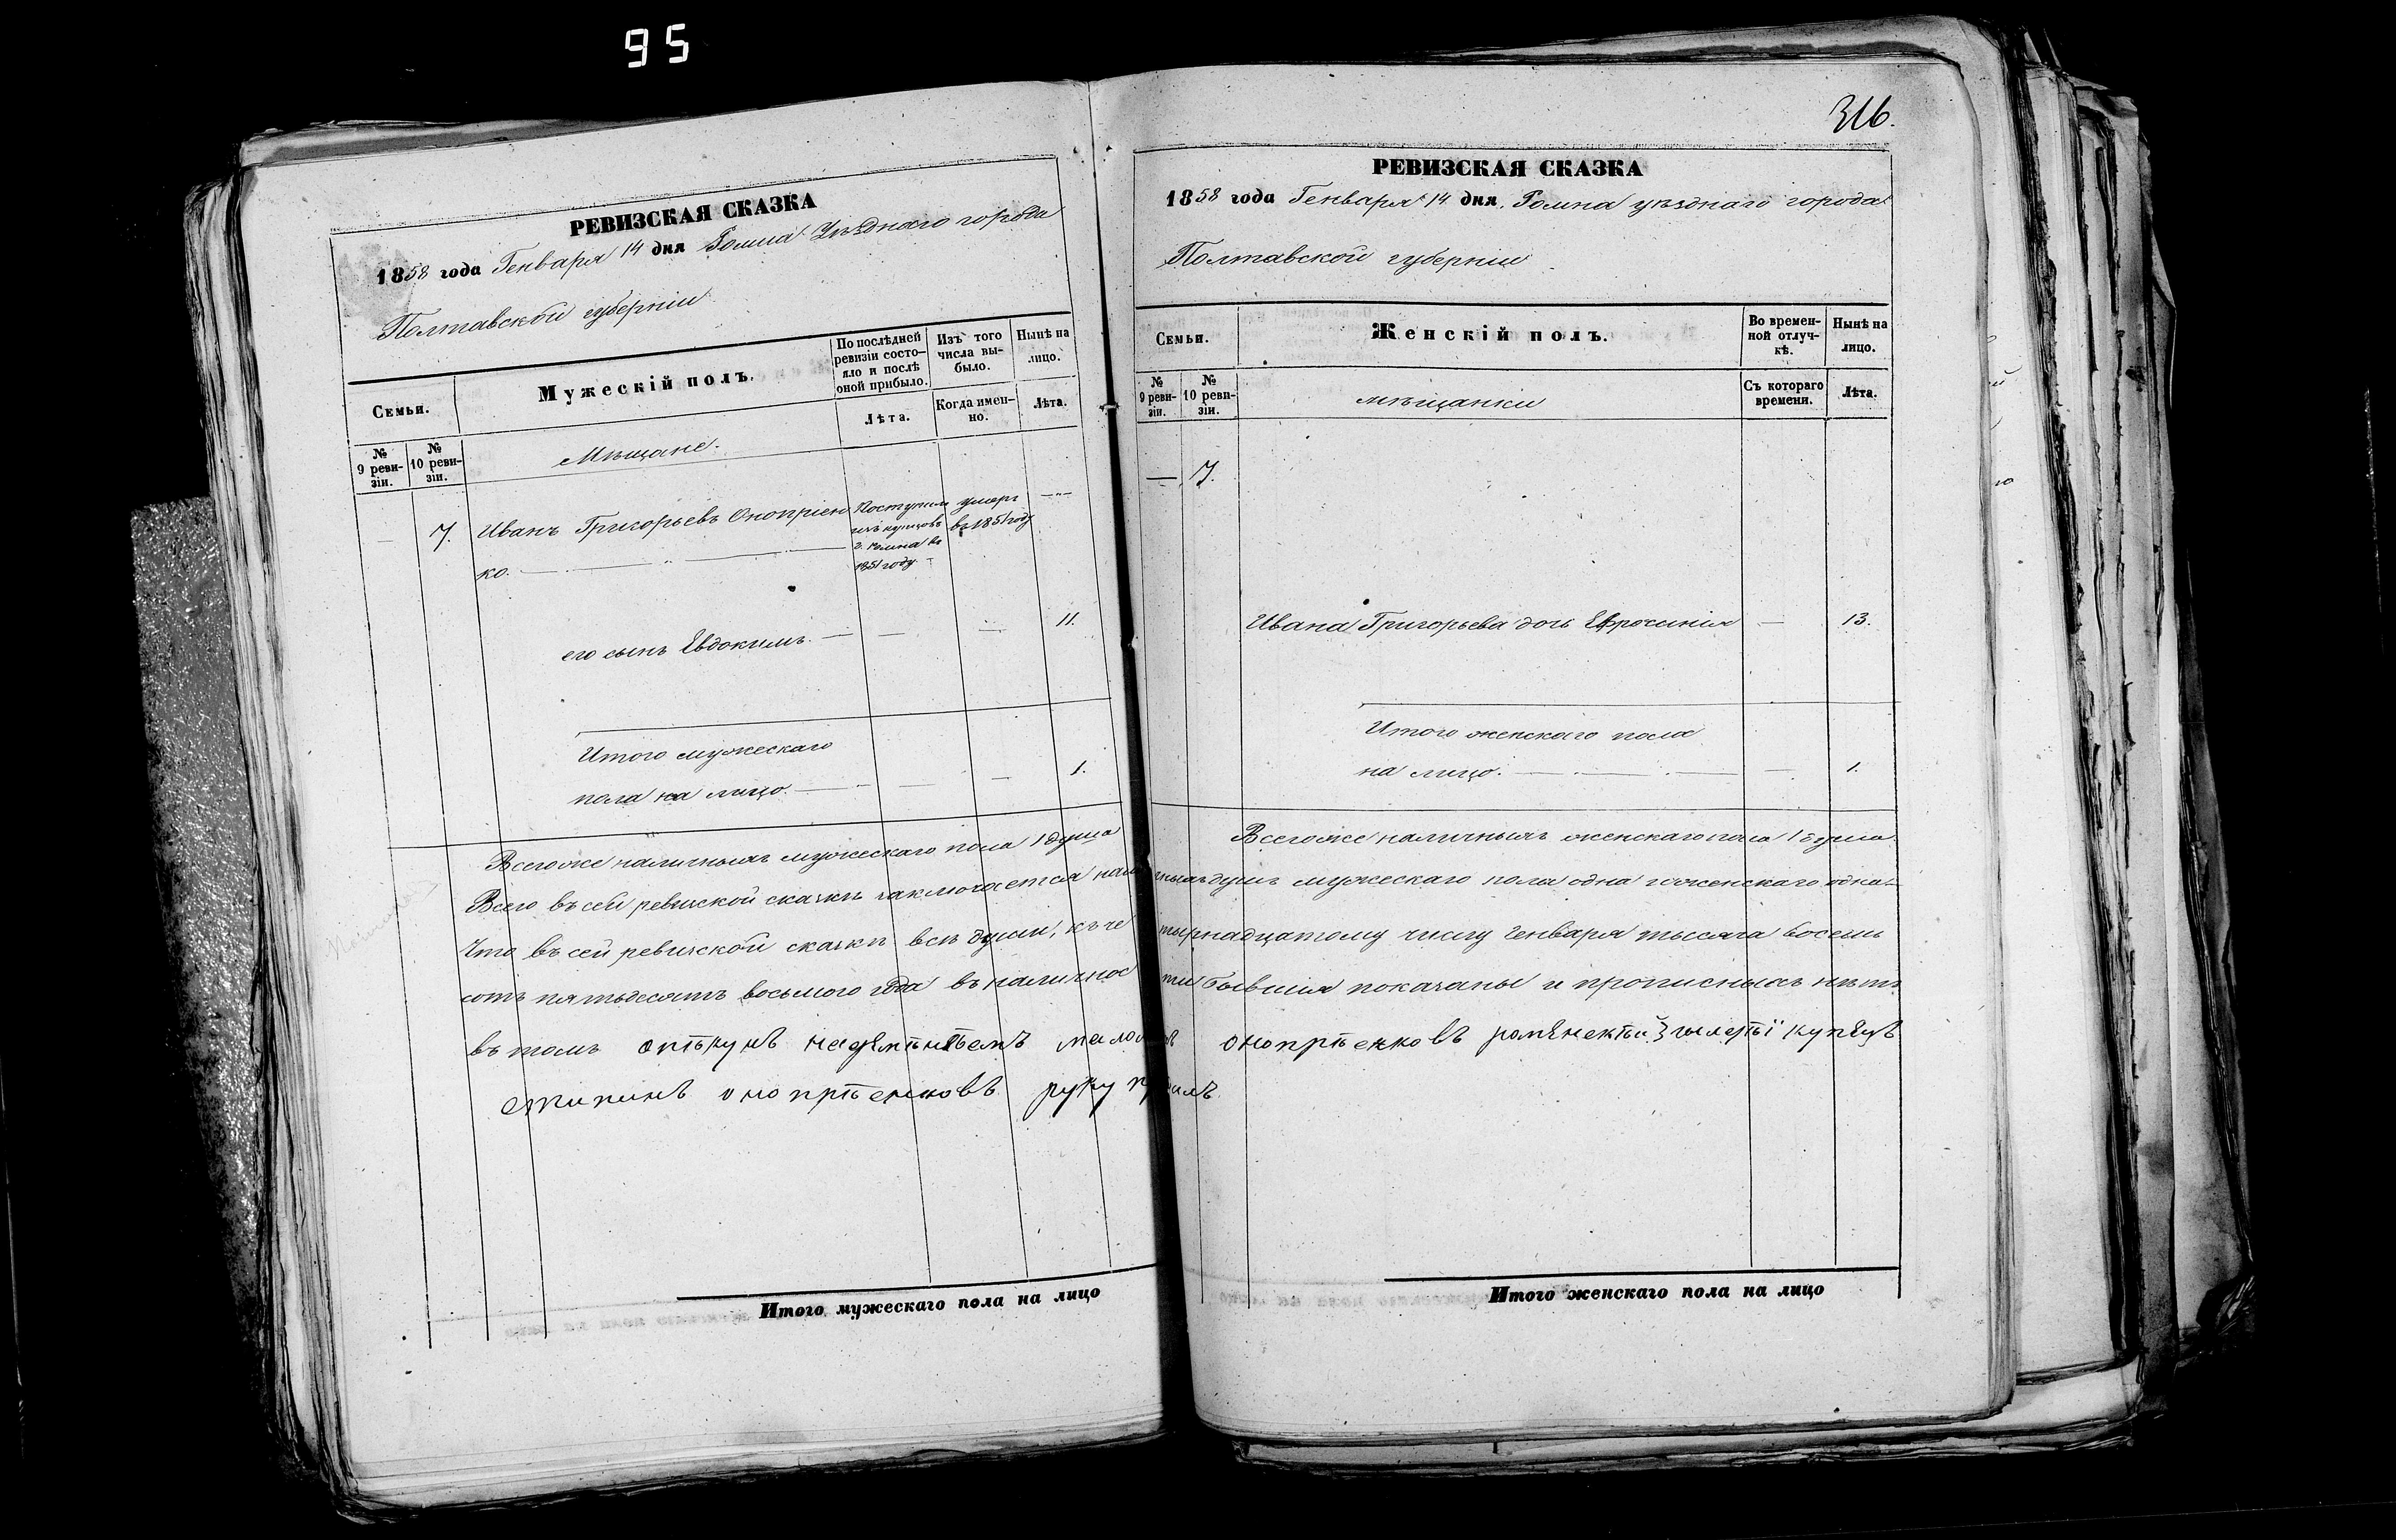 95
РЕВИЗСКАЯ СКАЗКА
1858 года Генваря 14 дня Ромна Уѣзднаго города
Полтавской губерніи
Семьи.
Мужескій полъ.
По послѣдней ревизіи состояло и послѣ оной прибыло.
Изъ того числа выбыло.
Нынѣ на лицо.
№ 9 ревизіи.
№ 10 ревизіи.
Мѣщане.
Лѣта.
Когда именно.
Лѣта.
— 7. Иванъ Григорьевъ Оноприен
ко.
Поступил
изъ купцовъ
г. Ромна въ
1851 году
умеръ
въ 1851 году
его сынъ Евдокимъ. — — — 11.
Итого мужескаго
пола на лицо. — — — 1.
Всегоже наличныхъ мужескаго пола 1 душа
316.
РЕВИЗСКАЯ СКАЗКА
1858 года Генваря 14 дня. Ромна уѣзднаго города
Полтавской губерніи
Семьи.
Женскій полъ.
Во временной отлучкѣ.
Нынѣ на лицо.
№ 9 ревизіи.
№ 10 ревизіи.
мѣщанки
Съ котораго времени.
Лѣта.
— 7.
Ивана Григорьева дочь Ефросинія — 13.
Итого женскаго пола
на лицо. — — 1.
Всегоже наличныхъ женскаго пола 1 душа.
Всего въ сей ревизской сказкѣ заключается наличныхъ душъ мужескаго пола одна и женскаго одна.
Что въ сей ревизской сказкѣ всѣ души, къ четырнадцатому числу Генваря тысяча восемь
сотъ пятьдесятъ восьмого года въ наличности бывшія показаны и прописныхъ нѣтъ
въ томъ опѣкунъ оноprѣенковъ купѣцъ
оноprѣенковъ руку
Итого мужескаго пола на лицо
Итого женскаго пола на лицо